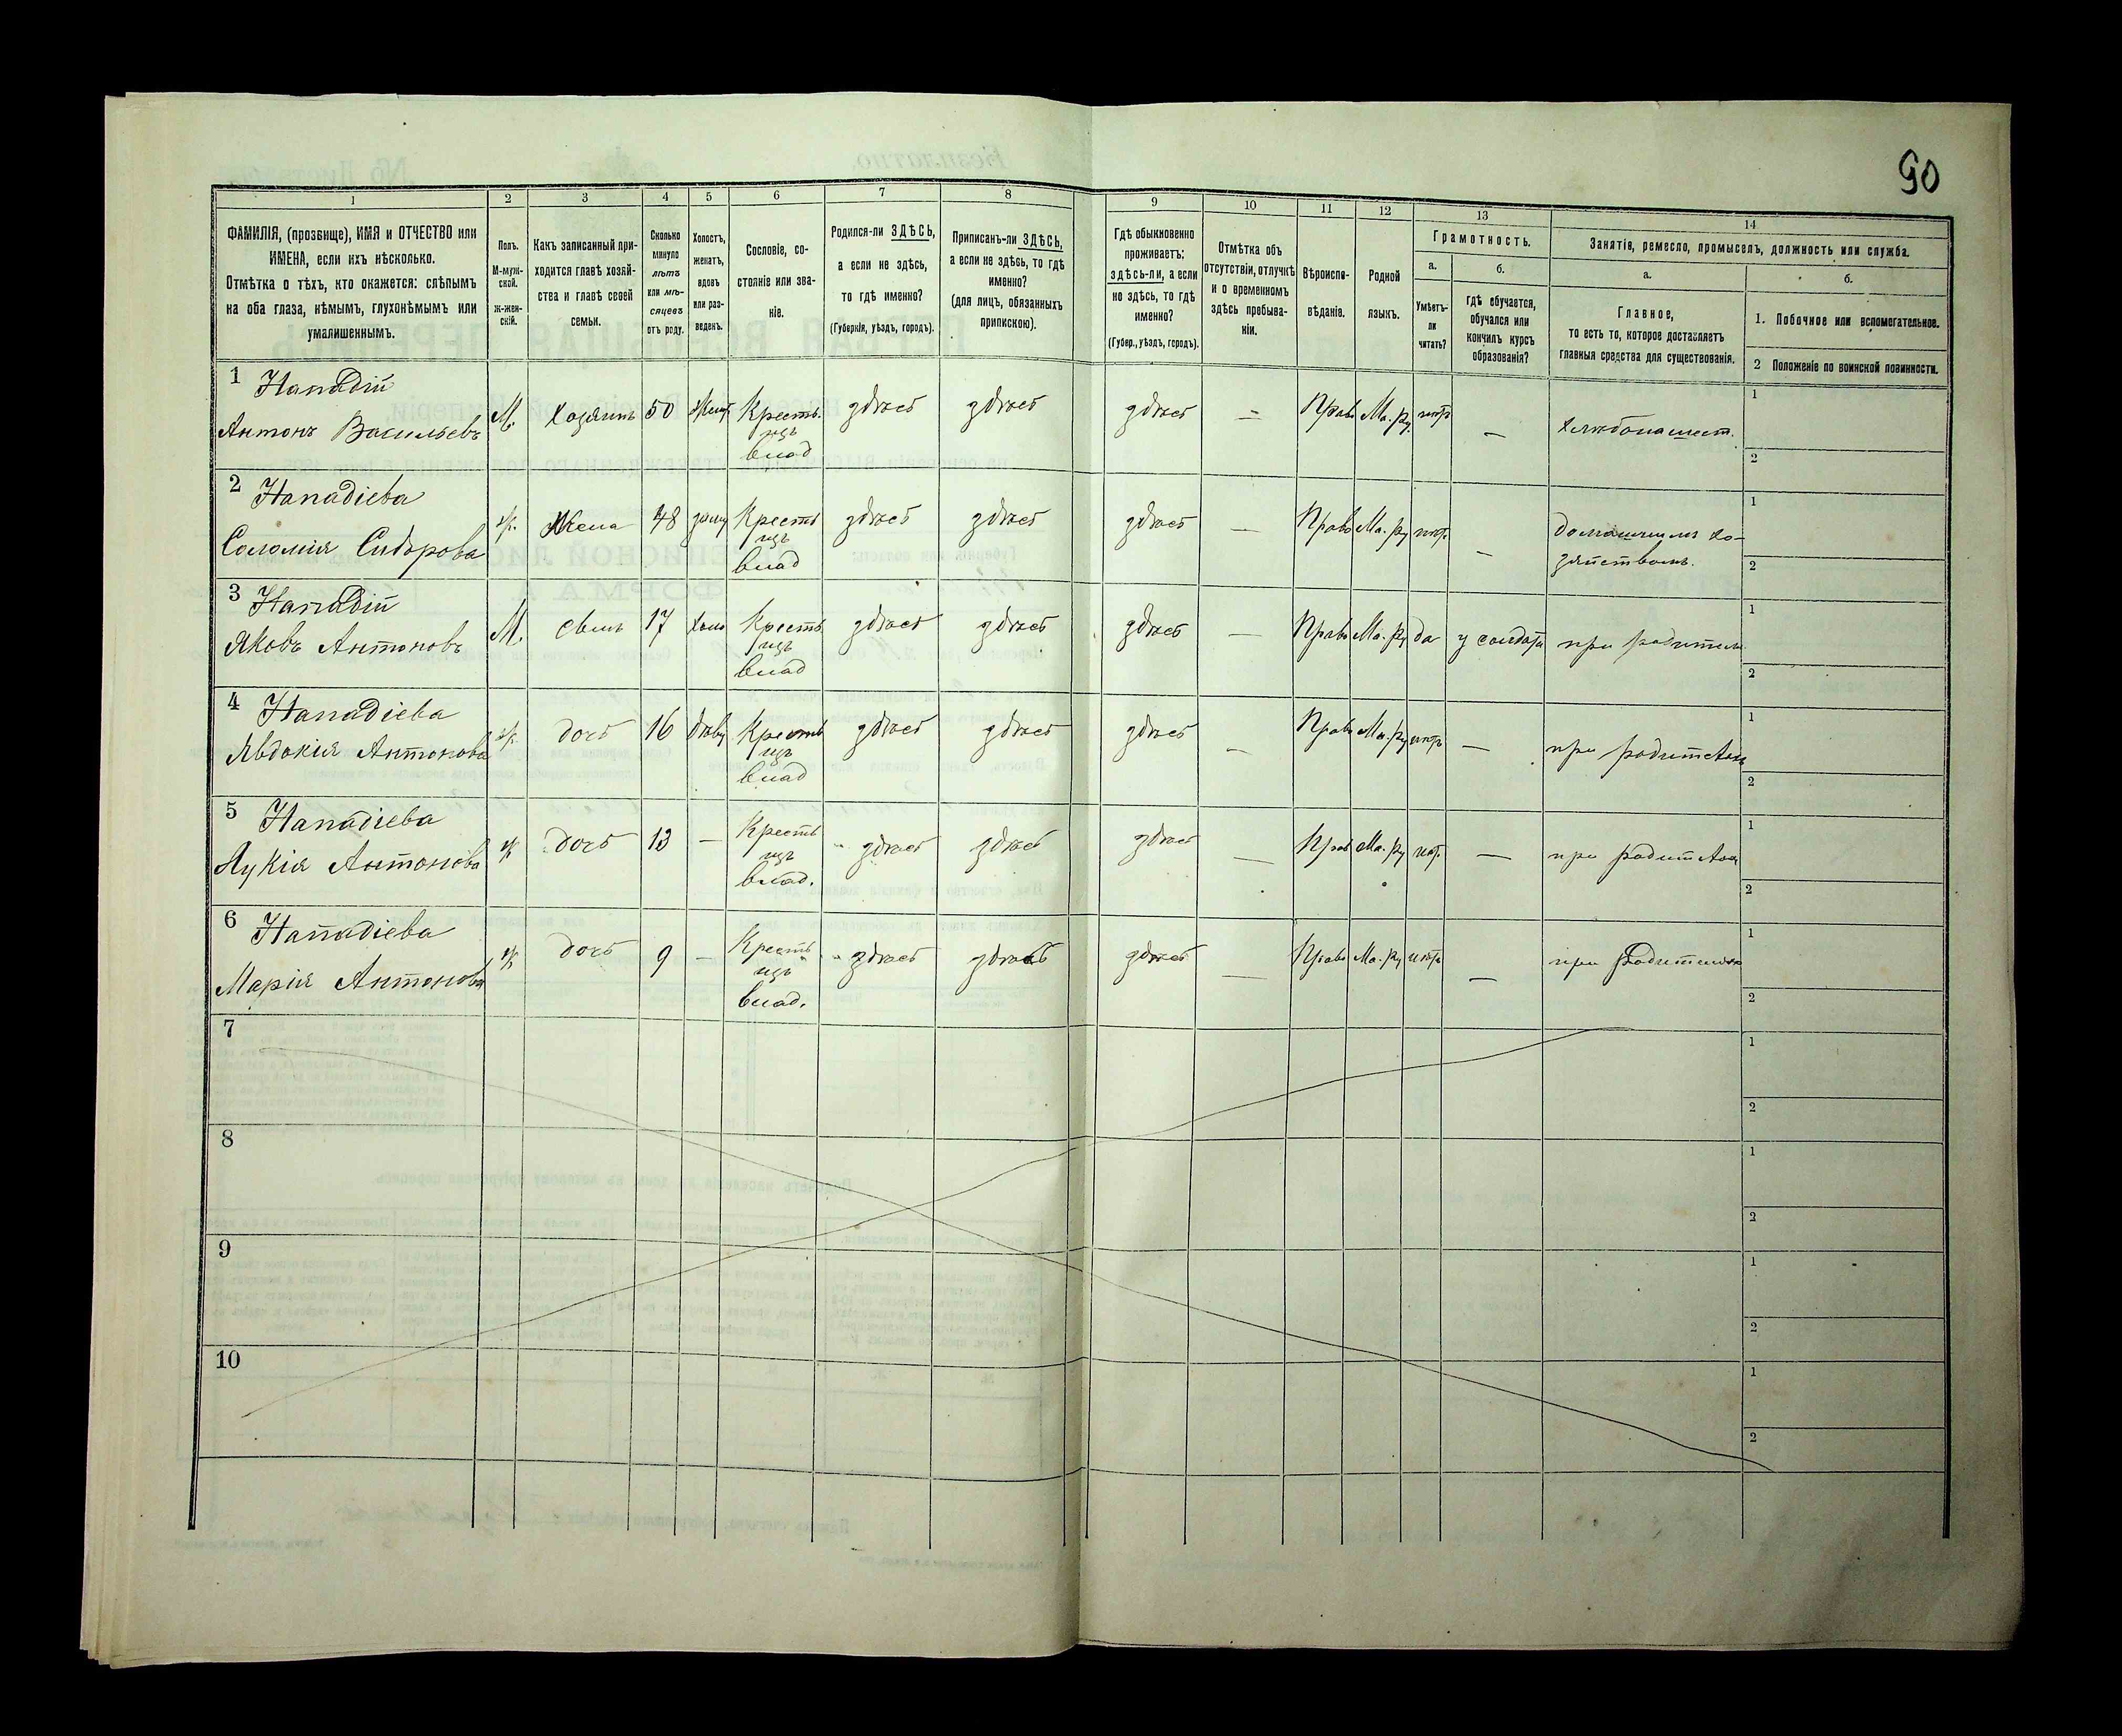 90
1 2 3 4 5 6 7 8 9 10 11 12 13 14
ФАМИЛІЯ, (прозвище), ИМЯ и ОТЧЕСТВО или
ИМЕНА, если ихъ нѣсколько.
Отмѣтка о тѣхъ, кто окажется: слѣпымъ
на оба глаза, нѣмымъ, глухонѣмымъ или
умалишеннымъ.
Полъ.
М-муж-
ской.
ж-жен-
скій.
Какъ записанный при-
ходится главѣ хозяй-
ства и главѣ своей
семьи.
Сколько
минуло
лѣтъ
или мѣ-
сяцевъ
отъ роду.
Холостъ,
женатъ,
вдовъ
или раз-
веденъ.
Сословіе, со-
стояніе или зва-
ніе.
Родился-ли ЗДѢСЬ,
а если не здѣсь,
то гдѣ именно?
(Губернія, уѣздъ, городъ).
Приписанъ-ли ЗДѢСЬ,
а если не здѣсь, то гдѣ
именно?
(для лицъ, обязанныхъ
припискою).
Гдѣ обыкновенно
проживаетъ:
здѣсь-ли, а если
не здѣсь, то гдѣ
именно?
(Губер., уѣздъ, городъ).
Отмѣтка объ
отсутствіи, отлучкѣ
и о временномъ
здѣсь пребыва-
ніи.
Вѣроиспо-
вѣданіе.
Родной
языкъ.
Грамотность.
а.
Умѣетъ-
ли
читать?
б.
Гдѣ обучается,
обучался или
кончилъ курсъ
образованія?
Занятія, ремесло, промыселъ, должность или служба.
а.
Главное,
то есть то, которое доставляетъ
главныя средства для существованія.
б.
1. Побочное или вспомогательное.
2 Положеніе по воинской повинности.
1 Нападій
Антонъ Васильевъ
М. Хозяинъ 50 Жен Крестъ.
изъ
влад
здѣсь здѣсь здѣсь — Прав Ма. ру. нѣтъ — Хлѣбопашест.
1
2
2 Нападіева
Соломія Сидорова
ж. Жена 48 заму Крестъ
изъ
влад
здѣсь здѣсь здѣсь — Прав Ма. ру нѣтъ —
домашнимъ хо-
зяйствомъ.
1
2
3 Нападій
Яковъ Антоновъ
М. сынъ 17 холо Крестъ
изъ
влад
здѣсь здѣсь здѣсь — Прав Ма. ру да у солдата при родител
1
2
4 Нападіева
Явдокія Антонова
ж. дочь 16 дѣви Крестъ
изъ
влад
здѣсь здѣсь здѣсь — Прав Ма. ру нѣтъ — при родителя
1
2
5 Нападіева
Лукія Антонова
ж дочь 13 — Крестъ
изъ
влад.
здѣсь здѣсь здѣсь — Прав Ма. ру нѣт. — при родителя
1
2
6 Нападіева
Марія Антонова
ж дочь 9 — Крестъ
изъ
влад.
здѣсь здѣсь здѣсь — Прав Ма. ру нѣтъ — при родителя
1
2
7
1
2
8
1
2
9
1
2
10
1
2